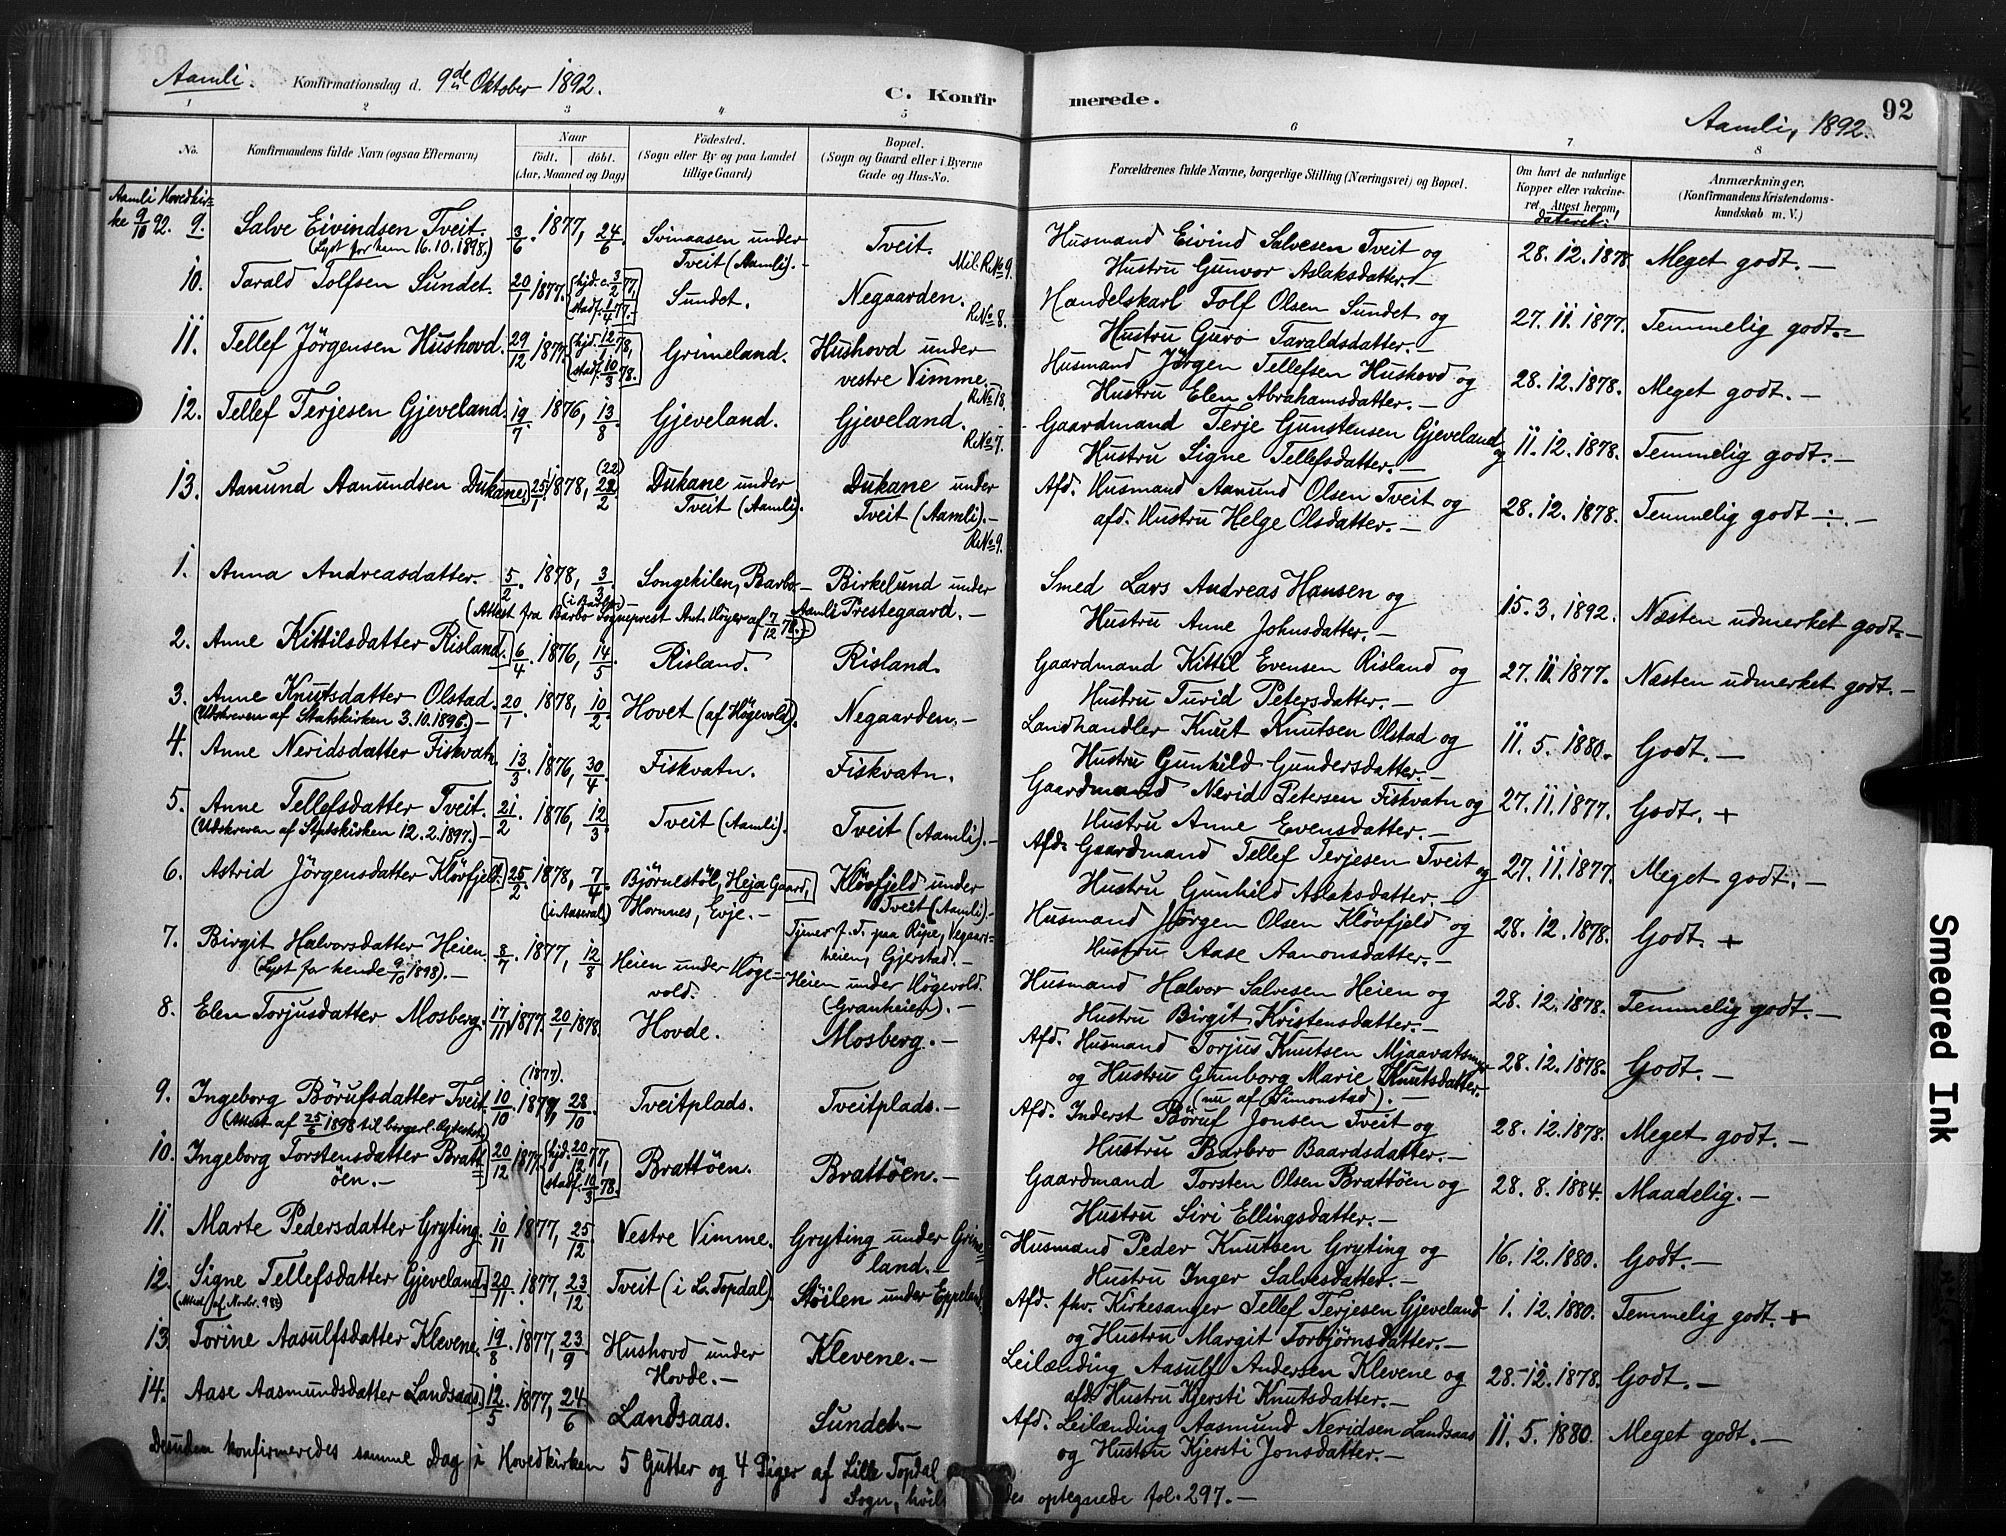 Aamli. Konfirmationsdag d. 9de Oktober 1892.
C. Konfirmerede.
92
Aamli, 1892.
1 2 3 4 5 6 7 8
No.
Konfirmandens fulde Navn (ogsaa Efternavn)
Naar
födt. döbt.
(Aar, Maaned og Dag)
Födested.
(Sogn eller By og paa Landet tillige Gaard)
Bopæl.
(Sogn og Gaard eller i Byerne Gade og Hus-No.
Forældrenes fulde Navne, borgerlige Stilling (Næringsvei) og Bopæl.
Om havt de naturlige Kopper eller vaccineret. Attest herom, dateret:
Anmærkninger.
(Konfirmandens Kristendomskundskab m. V.)
Aamli Hovedkirke 9/10 92.
9. Salve Eivindsen Tveit. 3/6. 1877, 24/6. Svinaasen under Tveit (Aamli).- Tveit. Husmand Eivind Salvesen Tveit og Hustru Gunvor Aslaksdatter.- 28.12.1878. Meget godt.-
(Lyst for ham 16.10.1898.)
Mil. R.No 9.
10. Tarald Tolfsen Sundet. 20/1 1877. (hjd. 3/2 77, stadf. 1/4 77.- Sundet. Negaarden. Handelskarl Tolf Olsen Sundet og Hustru Guro Taraldsdatter.- 27.11.1877. Temmelig godt.-
R.No 8.
11. Tellef Jörgensen Hushovd. 29/12 1877. (hjd. 12/1 78, stadf. 10/3 78. Grimeland. Hushovd under vestre Vimme.- Husmand Jörgen Tellefsen Hushovd og Hustru Elen Abrahamsdatter.- 28.12.1878. Meget godt.-
R.No 18.
12. Tellef Terjesen Gjeveland. 19/7 1876, 13/8. Gjeveland. Gjeveland. Gaardmand Terje Gunstensen Gjeveland og Hustru Signe Tellefsdatter.- 11.12.1878. Temmelig godt.-
R.No 7.
13. Aanund Aanundsen Dukane. 25/1 1878, (22) 22/2 Dukane under Tveit (Aamli). Dukane under Tveit (Aamli).- Afd. Husmand Aanund Olsen Tveit og afd. Hustru Helge Olsdatter.- 28.12.1878. Temmelig godt ÷.-
R.No 9.
1. Anna Andreasdatter. 5/2. 1878, 3/3. (i Barbo) Songekilen, Barbo.- Birkelund under Aamli Prestegaard.- Smed Lars Andreas Hansen og Hustru Anne Johnsdatter.- 15.3.1892. Næsten udmerket godt.-
(Attest fra Barbo Sogneprest Ant. Höyer af 7/12
2. Anne Kittilsdatter Risland. 6/4. 1876, 14/5. Risland. Risland. Gaardmand Kittil Evensen Risland og Hustru Turid Petersdatter.- 27.11.1877. Næsten udmerket godt.-
3. Anne Knutsdatter Olstad. 20/1. 1878, 10/2. Hovet (af Högevold). Negaarden.- Landhandler Knut Knutsen Olstad og Hustru Gunhild Gundersdatter.- 11.5.1880. Godt.-
(Udskreven af Statskirken 3.10.1896.)-
4. Anne Neridsdatter Fiskvatn. 13/3. 1876, 30/4. Fiskvatn. Fiskvatn. Gaardmand Nerid Petersen Fiskvatn og Hustru Anne Evensdatter.- 27.11.1877. Godt. +
5. Anne Tellefsdatter Tveit. 21/2. 1876, 12/3. Tveit (Aamli). Tveit (Aamli).- Afd. Gaardmand Tellef Terjesen Tveit og Hustru Gunhild Aslaksdatter.- 27.11.1877. Meget godt.-
(Udskreven af Statskirken 12.2.1897.)-
6. Astrid Jörgensdatter Klövfjeld. 25/2. 1878, 7/4. (i Aaseral) Björnestöl, Heja Gaard, Hornnes, Evje.- Klövfjeld under Tveit (Aamli).- Husmand Jörgen Olsen Klövfjeld og Hustru Aase Aanonsdatter.- 28.12.1878. Godt. +
Tjener f. T. paa Ripe, Vegaarsheien, Gjerstad.-
7. Birgit Halvorsdatter Heien. 8/7. 1877, 12/8 Heien under Högevold. Heien under Högevold. (Granheien).- Husmand Halvor Salvesen Heien og Hustru Birgit Kristensdatter.- 28.12.1878. Temmelig godt.-
(Lyst for hende 9/10 1898).-
8. Elen Torjusdatter Mosberg. 17/11 1877. 20/1 1878. Hovde. Mosberg.- Afd. Husmand Torjus Knutsen Mjaavatsmyr og Hustru Gunborg Marie Knutsdatter.- (nu af Simonstad).- 28.12.1878. Godt.-
9. Ingeborg Börufsdatter Tveit. 10/10. (1877). 1877, 28/10 Tveitplads. Tveitplads.- Afd. Inderst Böruf Jonsen Tveit og Hustru Barbro Baardsdatter.- 28.12.1878. Meget godt.-
(Attest af 25/6 1898 til borgerl. Ægteskab)
10. Ingeborg Torstensdatter Brattöen.- 20/12 1877. (hjd. 20/12 77, stadf. 10/3 78. Brattöen. Brattöen.- Gaardmand Torsten Olsen Brattöen og Hustru Siri Ellingsdatter.- 28.8.1884. Maadelig.-
11. Marte Pedersdatter Gryting. 10/11 1877, 25/12. Vestre Vimme. Gryting under Grimeland.- Husmand Peder Knutsen Gryting og Hustru Inger Salvesdatter.- 16.12.1880. Godt.-
12. Signe Tellefsdatter Gjeveland. 20/11. 1877, 23/12. Tveit (i L. Topdal). Stöilen under Eppeland. Afd. fhv. Kirkesanger Tellef Terjesen Gjeveland og Hustru Margit Torbjörnsdatter.- 1.12.1880. Temmelig godt. +
13. Torine Aasulfsdatter Klevene. 19/8. 1877, 23/9 Hushovd under Hovde.- Klevene.- Leilænding Aasulf Andersen Klevene og afd. Hustru Kjersti Knutsdatter.- 28.12.1878. Godt.-
14. Aase Aasmundsdatter Landsaas. 12/5 1877, 24/6 Landsaas. Sundet.- Afd. Leilænding Aasmund Neridsen Landsaas og Hustru Kjersti Jonsdatter.- 11.5.1880. Meget godt.-
Desuden konfirmeredes samme Dag i Hovedkirken 5 Gutter og 4 Piger af Lille Topdal
Sogn, hvilkes optegnede fol. 297.-
Smeared Ink